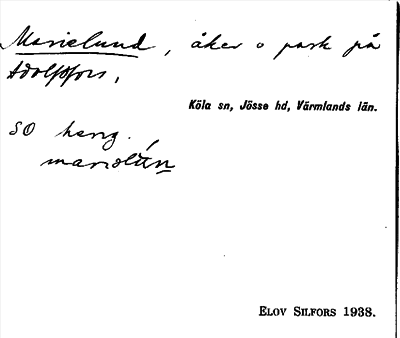 Marielund, åker o park på
Adolfsfors,
Köla sn, Jösse hd, Värmlands län.
SO herrg.
Elov Silfors 1938.